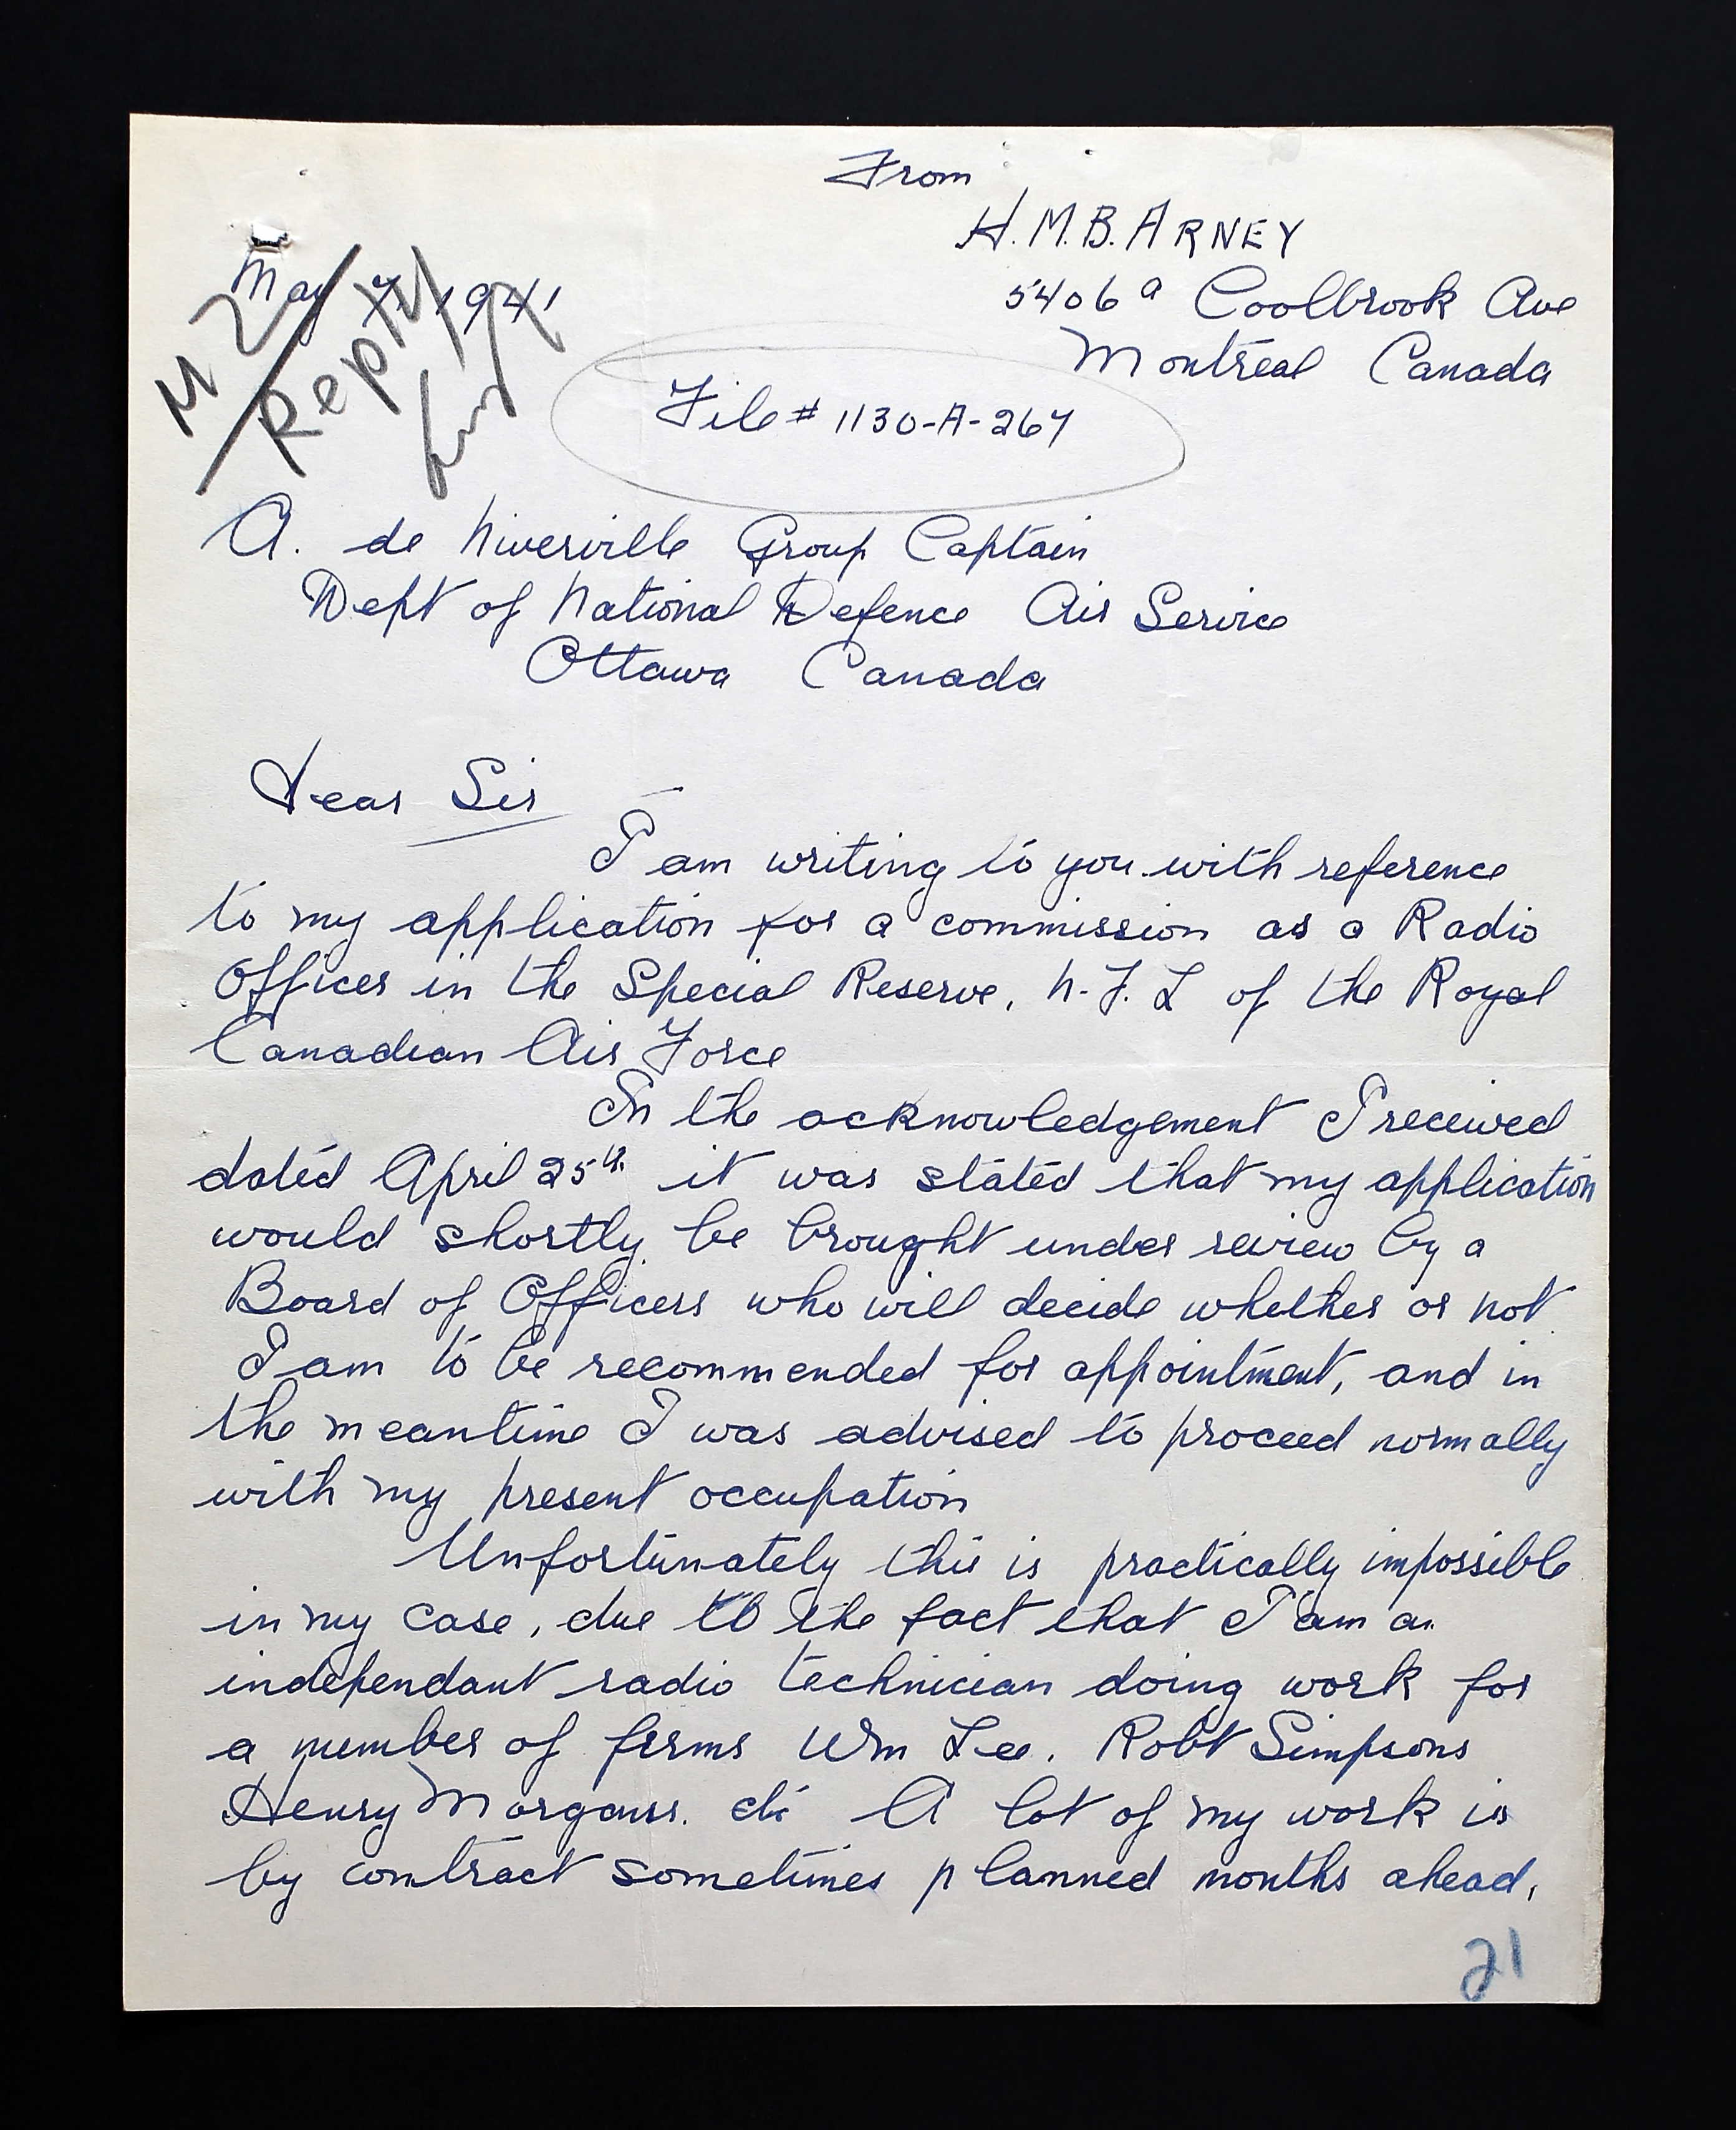 From
H. M. B. ARNEY
5406 a Coolbrook Ave
Montreal Canada
May 1941
M 2
Reptd
File # 1130-A-267
A. de Niverville Group Captain
Dept of National Defence Air Service
Ottawa Canada
Dear Sir
I am writing to you with reference
to my application for a commission as a Radio
Officer in the Special Reserve, N.F.L of the Royal
Canadian Air Force
In the acknowledgement I received
dated April 25th. it was stated that my application
would shortly be brought under review by a
Board of Officers who will decide whether or not
I am to be recommended for appointment, and in
the meantime I was advised to proceed normally
with my present occupation
Unfortunately this is practically impossible
in my case, due to the fact that I am an
independant radio technician doing work for
a number of firms Wm Lee. Robt Simpsons
Henry Morgans. etc A lot of my work is
by contract sometimes planned months ahead,
21